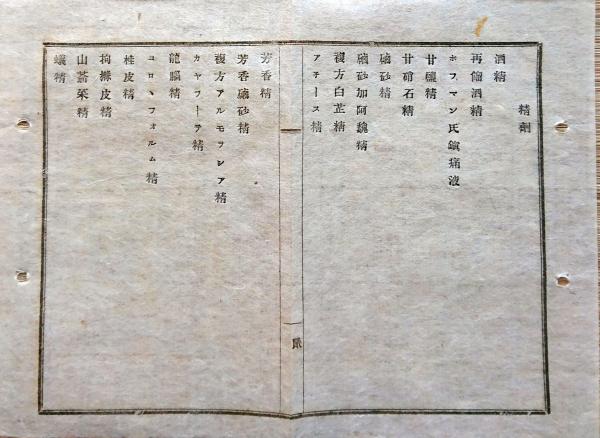 精剤
酒精
再餾酒精
ホフマン氏鎮痛液
甘礦精
甘硝石精
磠砂精
磠砂加阿魏精
複方白芷精
アチース精
芳香精
芳香磠砂精
複方アルモラシア精
カヤプーテ精
龍脳精
コロヽフォルム精
桂皮精
枸櫞皮精
山葵菜精
蟻精